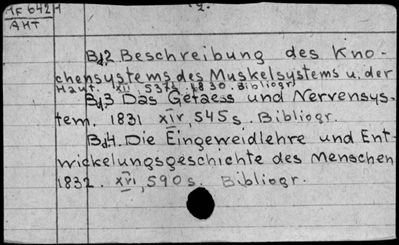 MF 642H
AHT
- 2 -
Bd2 Beschreibung des Kno-
chensystems des Muskelsystems u. der
Haut. XII, 537s. 1830. Bibliogr.
Bd3 Das Gefaess und Nervensys-
tem. 1831 XIV, 545 s. Bibliogr.
Bd4. Die Eingeweidlehre und Ent-
wickelungsgeschichte des Menschen
1832. XVI, 590 s. Bibliogr.